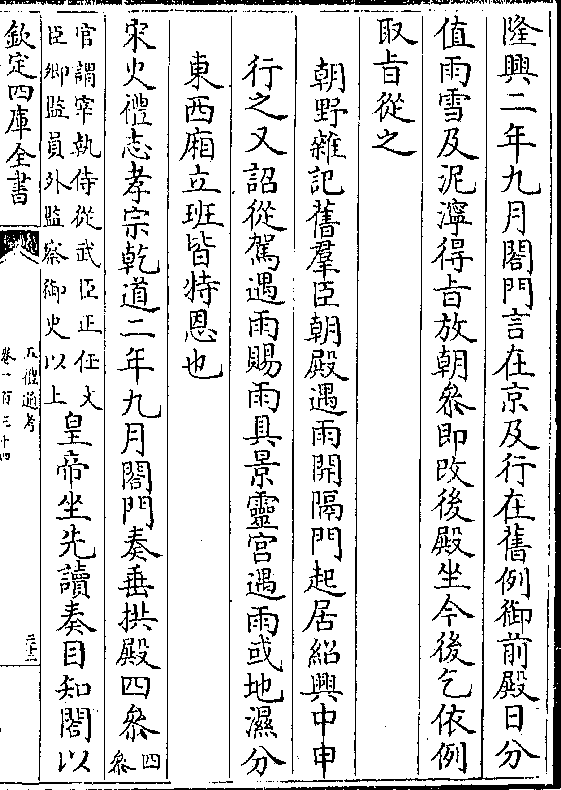 隆興二年九月閤門言在京及行在舊例御前殿日分
值雨雪及泥濘得旨放朝叅即改後殿坐今後乞依例
取旨從之
朝野雜記舊羣臣朝殿遇雨開隔門起居紹興中申
行之又詔從駕遇雨賜雨具景靈宮遇雨或地濕分
東西廂立班皆特恩也
宋史禮志孝宗乾道二年九月閤門奏垂拱殿四叅
四叅
官謂宰執侍從武臣正任文
臣卿監員外監察御史以上
皇帝坐先讀奏目知閤以
欽定四庫全書
五禮通考
卷一百三十四
三十二